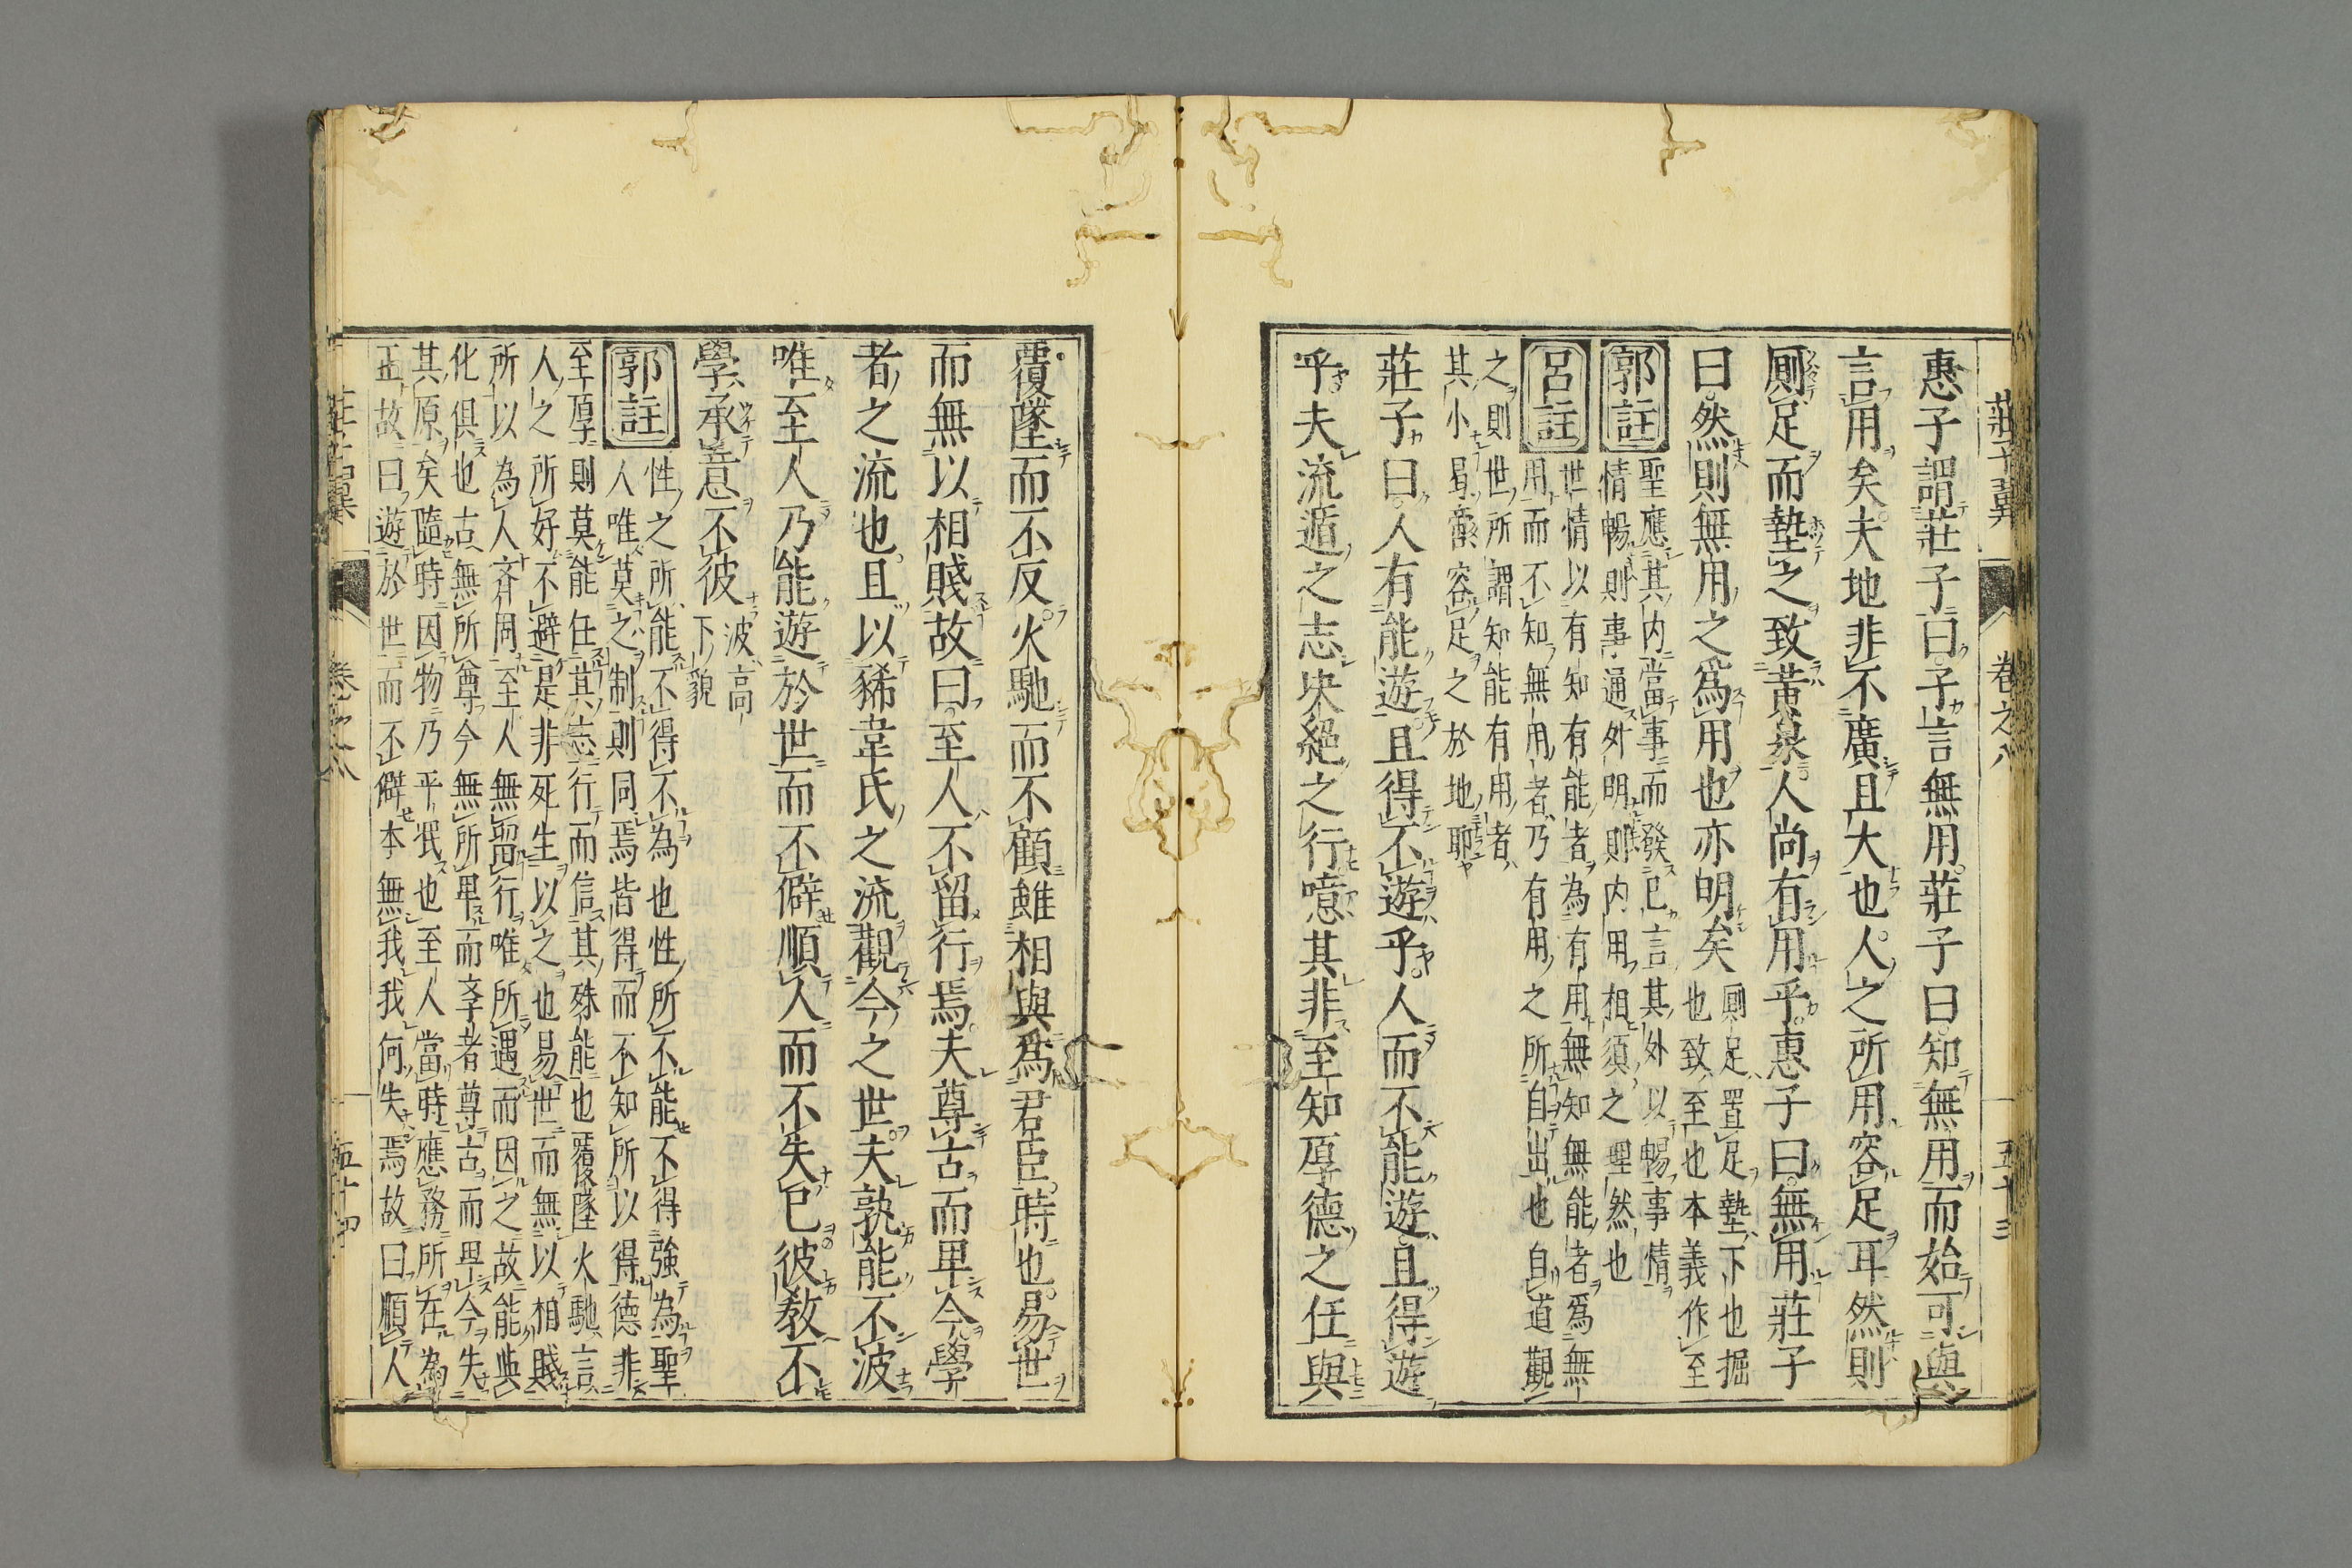 莊子翼 卷之八 五十三
惠子謂莊子曰子言無用莊子曰知無用而始可與
言用矣夫地非不廣且大也人之所用容足耳然則
厠足而墊之致黃泉人尚有用乎惠子曰無用莊子
曰然則無用之爲用也亦明矣 厠足置足墊下也掘
也致至也本義作至
郭註 聖應其内當事而發已言其外以暢事情
情暢則事通外明則内用相須之理然也
呂註 世情以有知有能者為有用無知無能者爲無
用而不知無用者乃有用之所自出也自道觀
之則世所謂知能有用者
其小曷啻容足之於地耶
莊子曰人有能遊且得不遊乎人而不能遊且得遊
乎夫流遁之志決絕之行噫其非至知厚德之任與
覆墜而不反火馳而不顧雖相與爲君臣時也易世
而無以相賤故曰至人不留行焉夫尊古而卑今學
者之流也且以狶韋氏之流觀今之世夫孰能不波
唯至人乃能遊於世而不僻順人而不失己彼教不
學承意不彼 波高
下貌
郭註 性之所能不得不為也性所不能不得強為聖
人唯莫之制則同焉皆得而不知所以得德非
至厚則莫能任其志行而信其殊能也覆墜火馳言
人之所好不避是非死生以之也易世而無以相賤
所以為人齊同至人無留行唯所遇而因之故能與
化俱也古無所尊今無所卑而李者尊古而卑今失
其原矣隨時因物乃平泯也至人當時應務所在為
正故曰遊於世而不僻本無我我何失焉故曰順人
莊子翼 卷之八 五十四